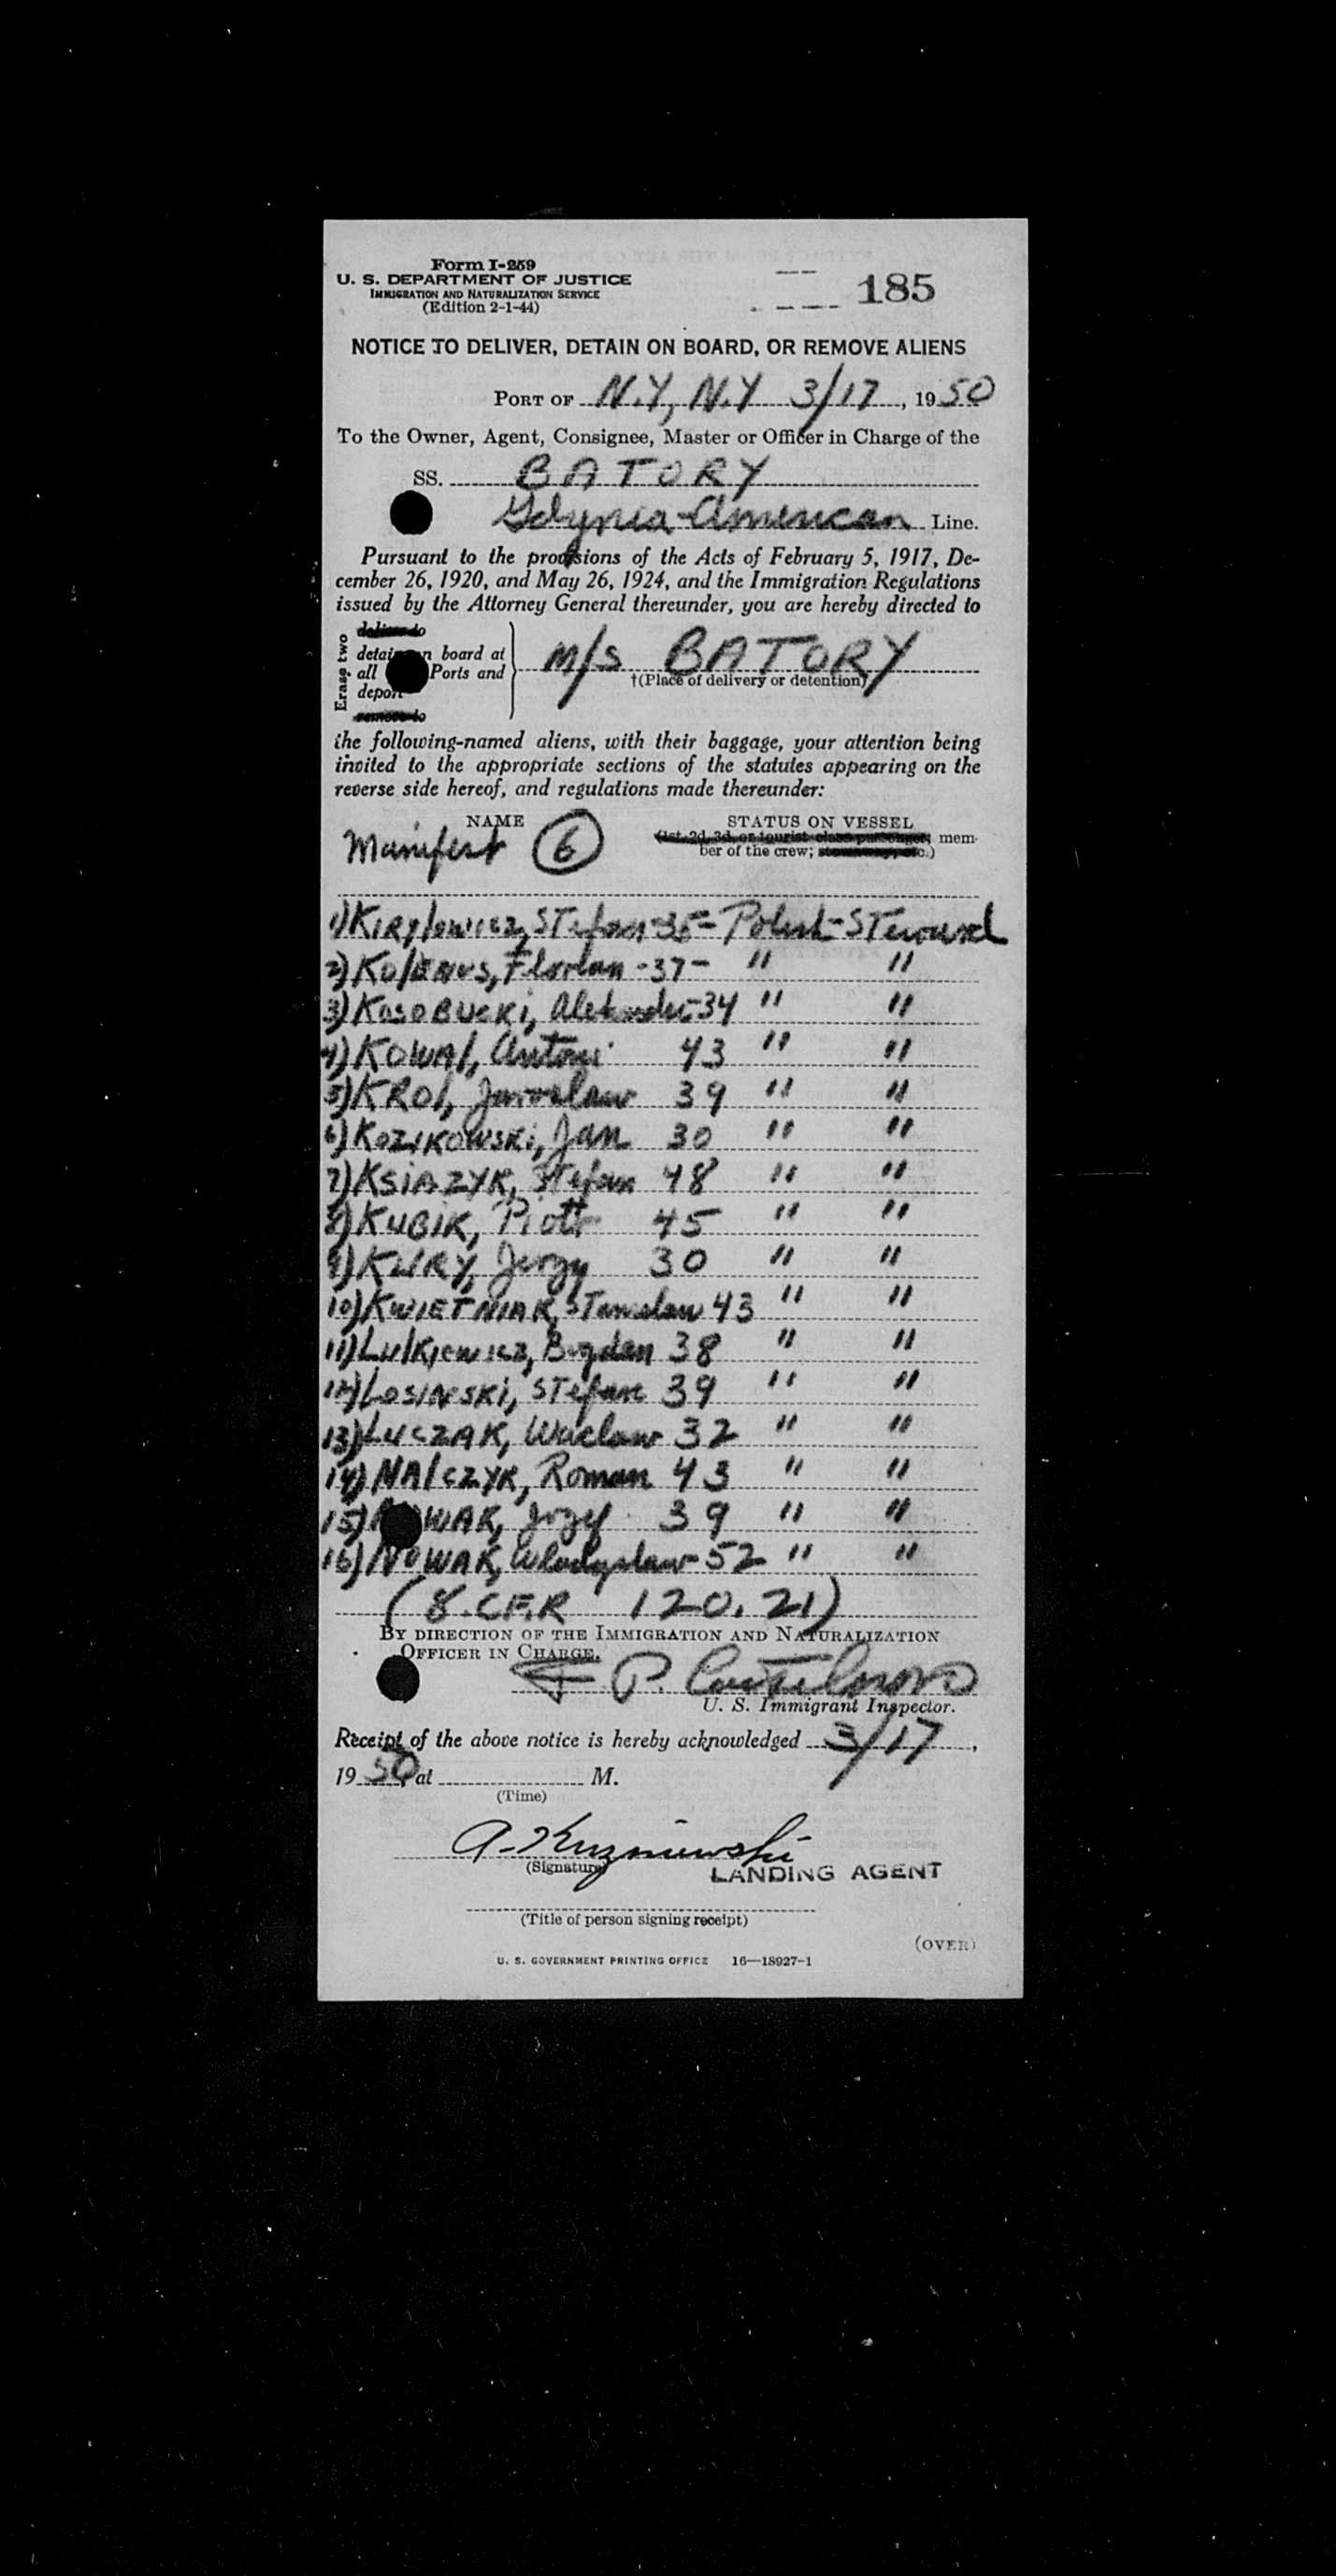 Form I-259
U. S. DEPARTMENT OF JUSTICE
IMMIGRATION AND NATURALIZATION SERVICE
(Edition 2-1-44)
185
NOTICE TO DELIVER, DETAIN ON BOARD, OR REMOVE ALIENS
PORT OF N.Y, N.Y 3/17, 1950
To the Owner, Agent, Consignee, Master or Officer in Charge of the
SS. BATORY
Gdynia-American Line.
Pursuant to the provisions of the Acts of February 5, 1917, De-
cember 26, 1920, and May 26, 1924, and the Immigration Regulations
issued by the Attorney General thereunder, you are hereby directed to
Erase two
deliver to
detain on board at
all Ports and
deport
remove to
M/S BATORY
†(Place of delivery or detention)
the following-named aliens, with their baggage, your attention being
invited to the appropriate sections of the statutes appearing on the
reverse side hereof, and regulations made thereunder:
NAME
STATUS ON VESSEL
Manifest 6
(1st, 2d, 3d, or tourist class passenger; mem-
ber of the crew; stowaway, etc.)
1) KIRylowicz, STefan-35- Polish-STeward
2) KOlENUS, Florian -37- " "
3) KOSOBUCKi, Aleksander-34 " "
4) KOWAl, Antoni 43 " "
5) KROl, Jaroslaw 39 " "
6) KOZIKOWSKi, Jan 30 " "
7) KSiAZYK, STefan 48 " "
8) KUBIK, Piotr 45 " "
9) KURY, Jerzy 30 " "
10) KWIETNIAK, STanislaw 43 " "
11) LulKiewicz, Bogdan 38 " "
12) LOSINSKi, STefan 39 " "
13) LUCZAK, Waclaw 32 " "
14) MAlCZYK, Roman 43 " "
15) NOWAK, Jozef 39 " "
16) NOWAK, Wladyslaw-52 " "
(8.CF.R 120.21)
BY DIRECTION OF THE IMMIGRATION AND NATURALIZATION
OFFICER IN CHARGE.
P.
U. S. Immigrant Inspector.
Receipt of the above notice is hereby acknowledged 3/17,
1950, at M.
(Time)
A. Kuzniewski
(Signature)
LANDING AGENT
(Title of person signing receipt)
(OVER)
U. S. GOVERNMENT PRINTING OFFICE 16—18927-1